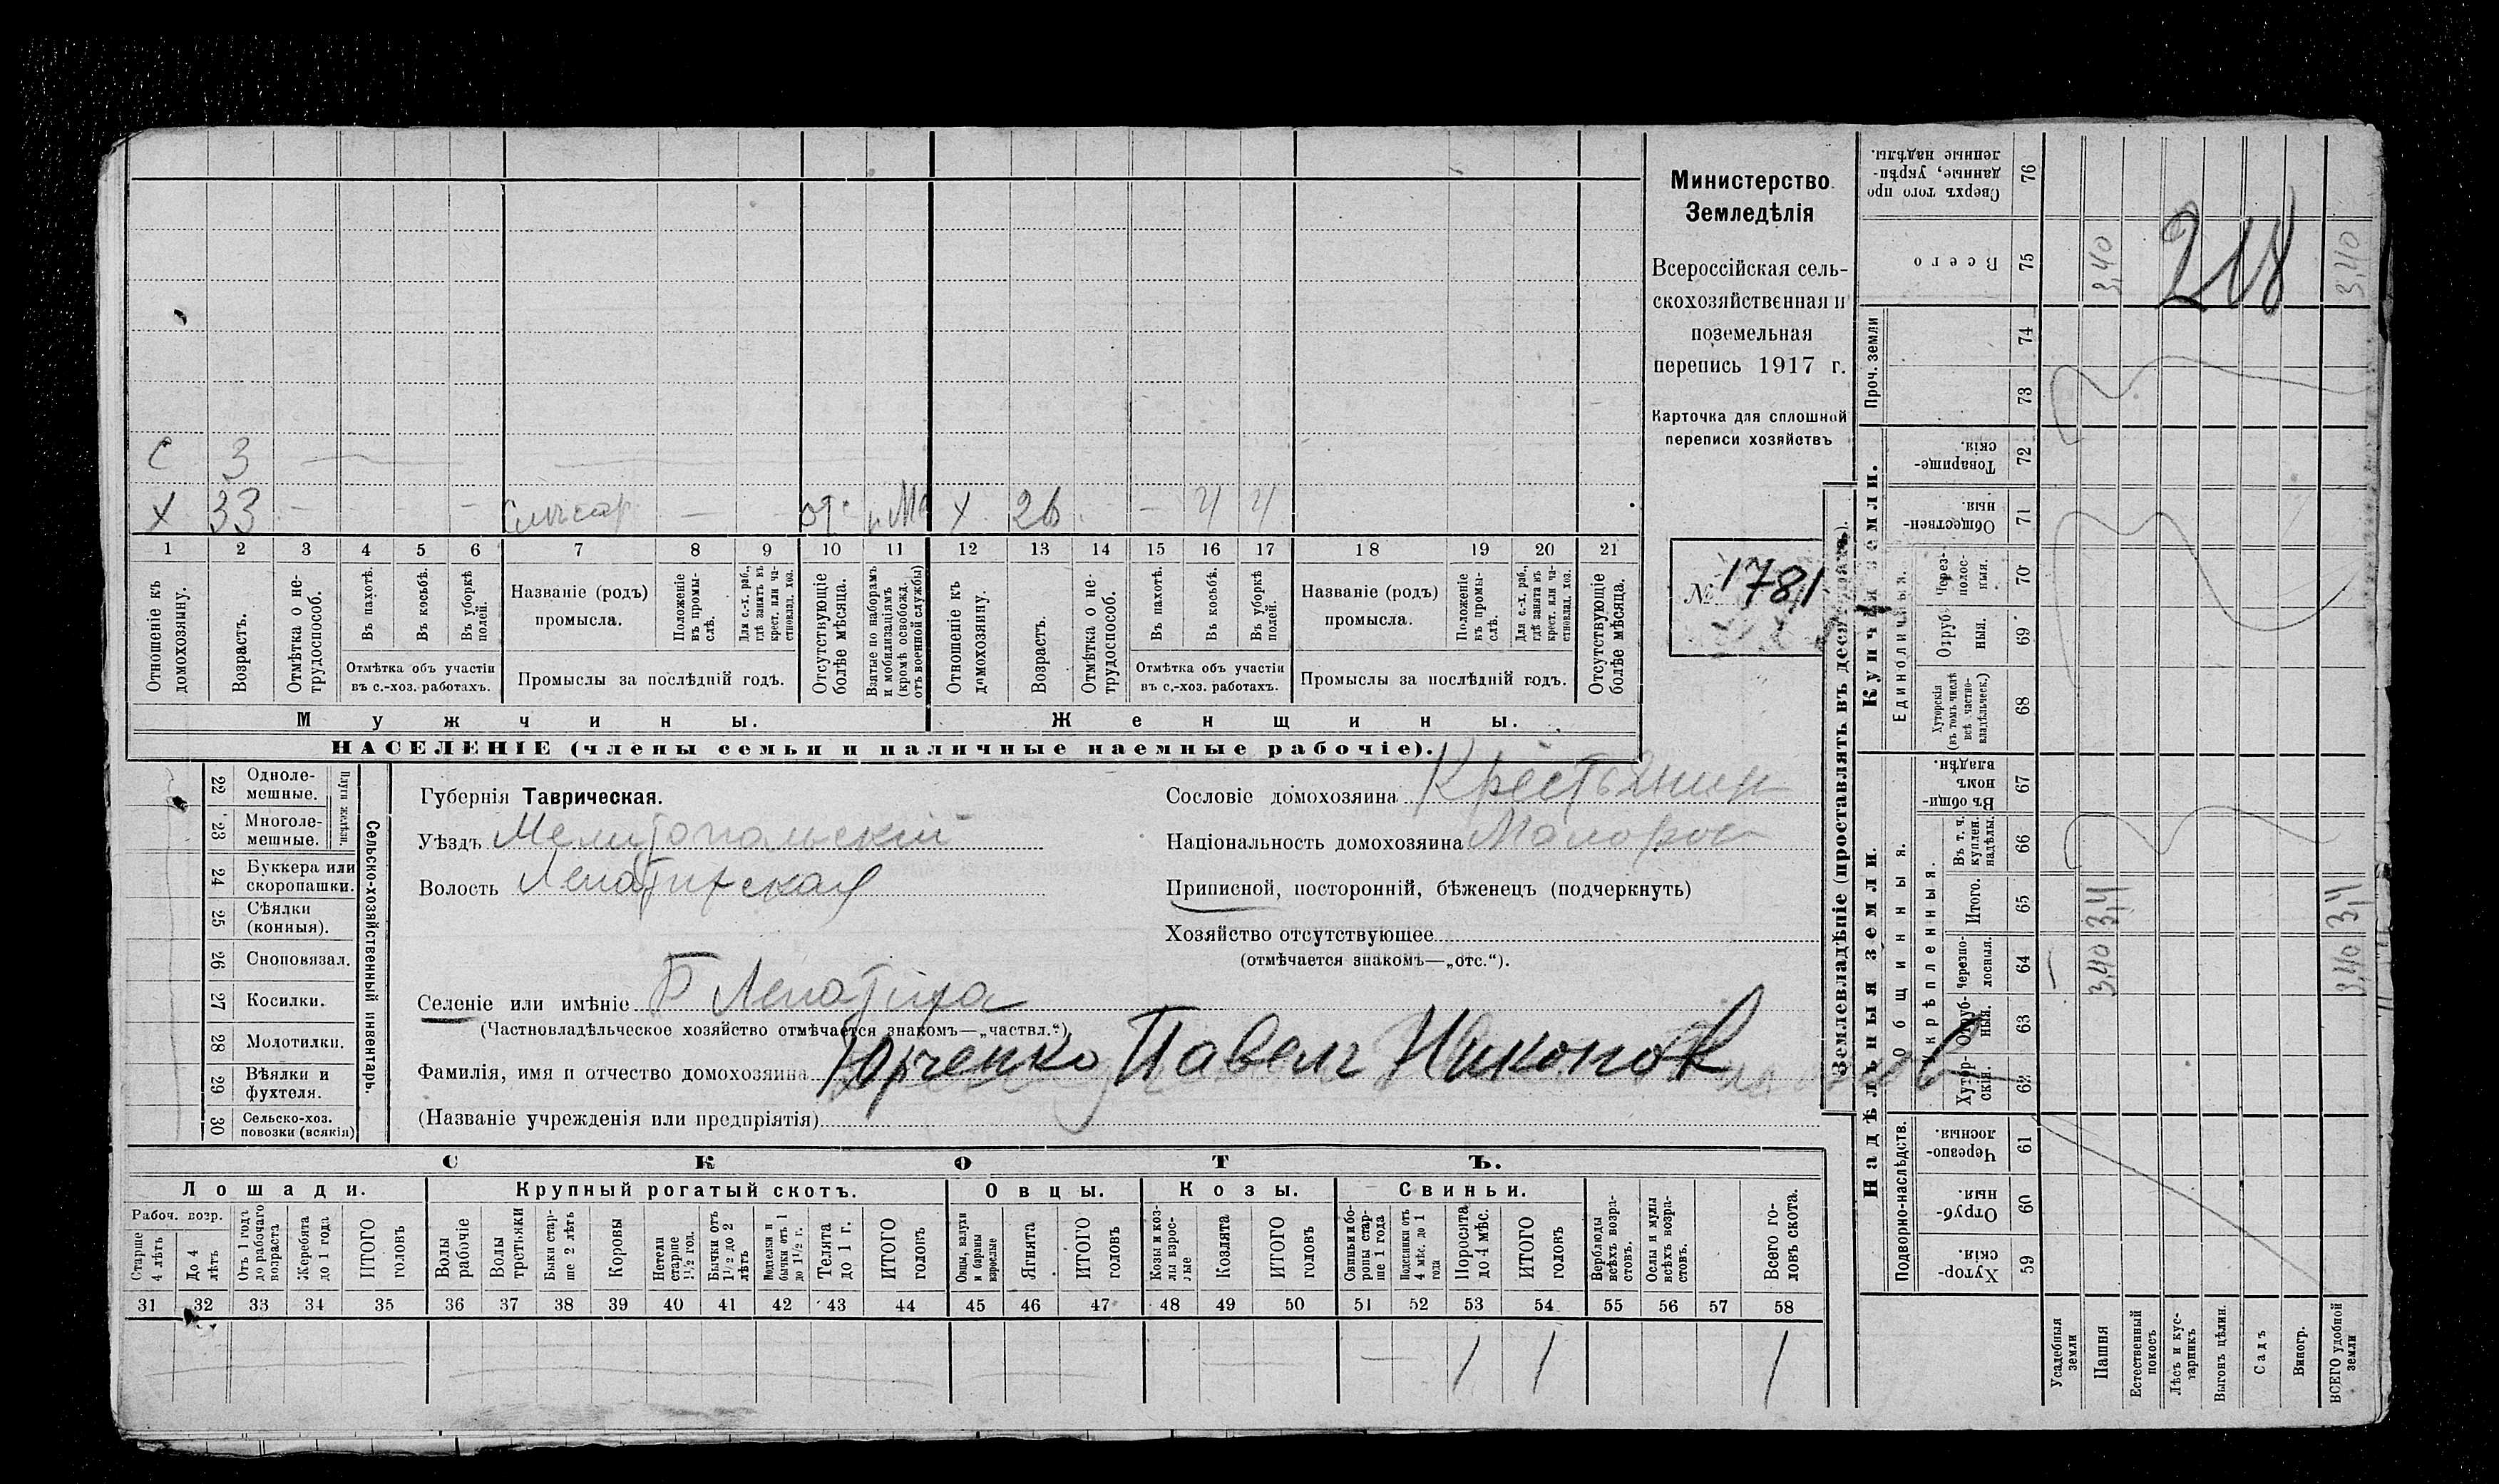 С 3
Х 33 Слесар Х 26 Ч Ч
1 2 3 4 5 6 7 8 9 10 11 12 13 14 15 16 17 18 19 20 21
Отношеніе къ домохозяину.
Возрастъ.
Отмѣтка о нетрудоспособ.
Въ пахотѣ.
Въ косьбѣ.
Въ уборкѣ полей.
Отмѣтка объ участіи
въ с.-хоз. работахъ.
Названіе (родъ)
промысла.
Положеніе въ промыслѣ.
Для с.-х. раб., гдѣ занятъ въ крест. или частновлад. хоз.
Промыслы за послѣдній годъ.
Отсутствующіе болѣе мѣсяца.
Взятые по наборамъ и мобилизаціямъ (кромѣ освобожд. отъ военной службы)
Отношеніе къ домохозяину.
Возрастъ.
Отмѣтка о нетрудоспособ.
Въ пахотѣ.
Въ косьбѣ.
Въ уборкѣ полей.
Отмѣтка объ участіи
въ с.-хоз. работахъ.
Названіе (родъ)
промысла.
Положеніе въ промыслѣ.
Для с.-х. раб., гдѣ занята въ крест. или частновлад. хоз.
Промыслы за послѣдній годъ.
Отсутствующіе болѣе мѣсяца.
Мужчины.
Женщины.
НАСЕЛЕНІЕ (члены семьи и наличные наемные рабочіе).
Министерство
Земледѣлія
Всероссійская сель-
скохозяйственная и
поземельная
перепись 1917 г.
Карточка для сплошной
переписи хозяйствъ
№ 1781
22 Одноле-
мешные.
23 Многоле-
мешные.
Плуги желѣзн.
24 Буккера или
скоропашки.
25 Сѣялки
(конныя).
26 Сноповязал.
27 Косилки.
28 Молотилки.
29 Вѣялки и
фухтеля.
30 Сельско-хоз.
повозки (всякія)
Сельско-хозяйственный инвентарь.
Губернія Таврическая.
Уѣздъ Мелитопольскій
Волость Лепатихская
Селеніе или имѣніе Б Лепатиха
(Частновладѣльческое хозяйство отмѣчается знакомъ—„частвл.“)
Фамилія, имя и отчество домохозяина Юрченко Павелъ Никонов
(Названіе учрежденія или предпріятія)
Сословіе домохозяина Крестьянин
Національность домохозяина Малорос
Приписной, посторонній, бѣженецъ (подчеркнуть)
Хозяйство отсутствующее
(отмѣчается знакомъ—„отс.“).
СКОТЪ.
Лошади.
Крупный рогатый скотъ.
Овцы.
Козы.
Свиньи.
Рабоч. возр.
Старше 4 лѣтъ
До 4 лѣтъ
Отъ 1 года до рабочаго возраста
Жеребята до 1 года
ИТОГО головъ
Волы рабочіе
Волы третьяки
Быки старше 2 лѣтъ
Коровы
Нетели старше 1½ год.
Бычки отъ 1½ до 2 лѣтъ
Подтелки и бычки отъ 1 до 1½ г.
Телята до 1 г.
ИТОГО головъ
Овцы, валухи и бараны взрослые
Ягнята
ИТОГО головъ
Козы и козлы взрослые
Козлята
ИТОГО головъ
Свиньи и боровы старше 1 года
Подсвинки отъ 4 мѣс. до 1 года
Поросята до 4 мѣс.
ИТОГО головъ
Верблюды всѣхъ возрастовъ.
Ослы и мулы всѣхъ возрастовъ.
Всего головъ скота.
31 32 33 34 35 36 37 38 39 40 41 42 43 44 45 46 47 48 49 50 51 52 53 54 55 56 57 58
1 1 1
Землевладѣніе (проставлять въ десятинахъ).
Купчія земли.
Надѣльныя земли.
Сверхъ того проданные, укрѣпленные надѣлы. 76
Всего 75 3,40 3,40
218
Проч. земли 74
73
Товарищескія. 72
Общественныя 71
Единоличныя.
Черезполосныя. 70
Отрубныя. 69
Хуторскія (въ томъ числѣ всѣ частновладѣльческ.) 68
Общинныя.
Въ общинномъ владѣн. 67
Укрѣпленныя.
Въ т. ч. куплен. надѣлы. 66
Итого. 65
Черезполосныя. 64 3,40 3,40
Отрубныя. 63
Хуторскія. 62
Подворно-наслѣдств.
Черезполосныя. 61
Отрубныя. 60
Хуторскія. 59
Усадебныя земли
Пашня
Естественный покосъ
Лѣсъ и кустарникъ
Выгонъ цѣлин.
Садъ
Виногр.
ВСЕГО удобной земли